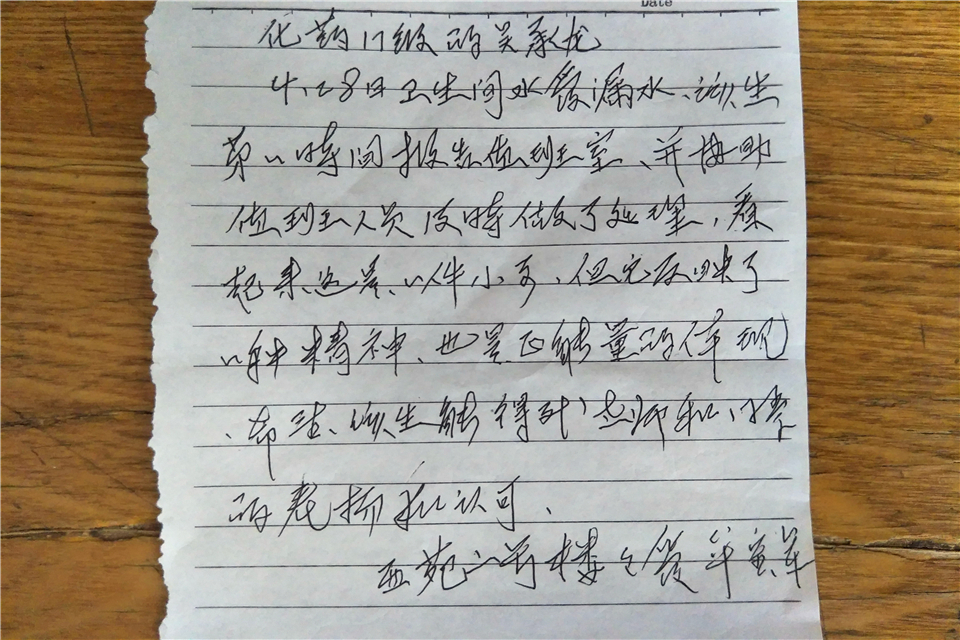 Date
化药11级的关承龙
4.28日卫生间水管漏水、该生
第一时间报告值班室、并协助
值班人员及时做了处理,看
起来这是、一件小事、但它反映了
一种精神、也是正能量的体现
、希望、该生能得到老师和学校
的表扬和认可、
西苑 号楼 管